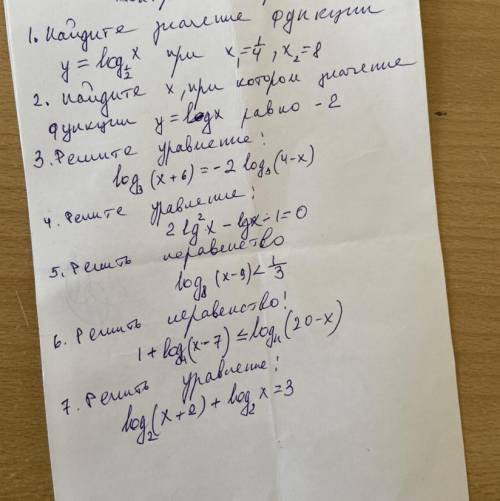 1. Найдите значение функции
y = log½ x при x₁=¼, x₂=8
2. Найдите x, при котором значение
функции y = lgx равно -2
3. Решите уравнение:
log₃(x+6) = -2 log₉(4-x)
4. Решите уравнение:
2 lg²x - lgx - 1 = 0
5. Решить неравенство
log₈(x-9) < 1/3
6. Решить неравенство:
1 + log₄(x-7) ≤ log₄(20-x)
7. Решить уравнение:
log₂(x+2) + log₂x = 3